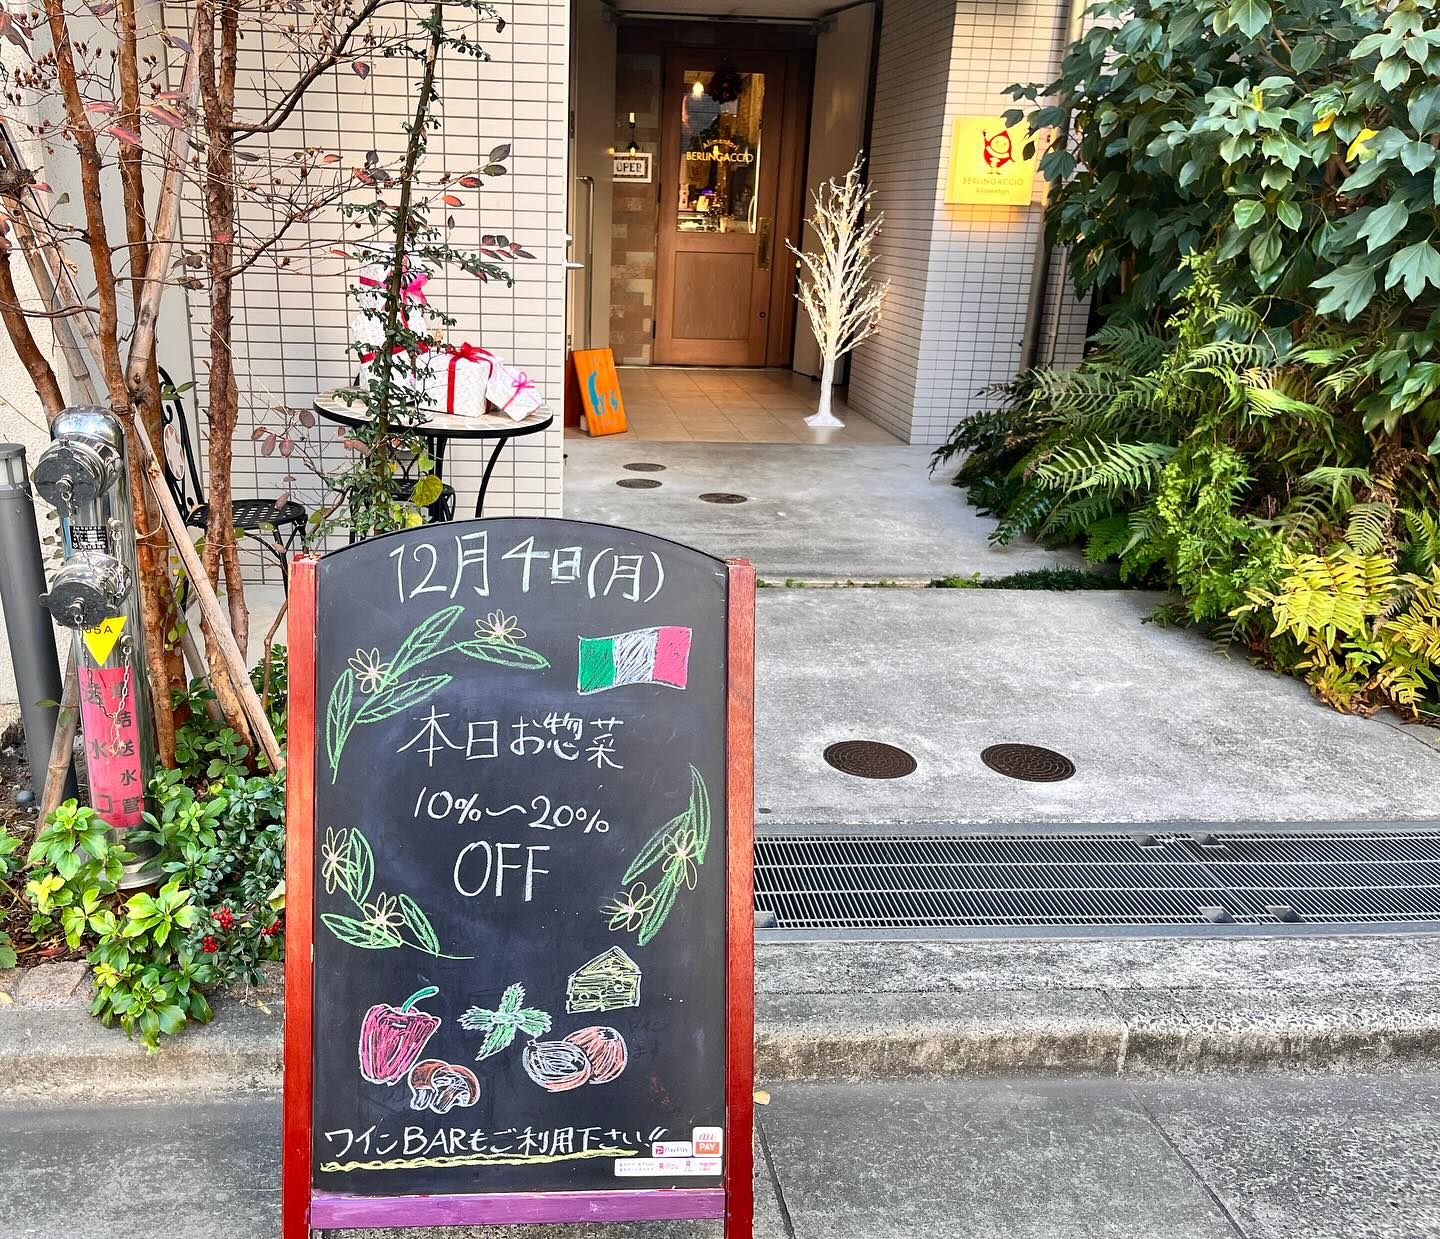 Alimentari
BERLINGACCIO
OPEN
BERLINGACCIO
Alimentari
12月4日(月)
本日お惣菜
10%〜20%
OFF
ワインBARもご利用下さい!!
PayPay
au
PAY
R Pay
65A
連結送水管
送水口